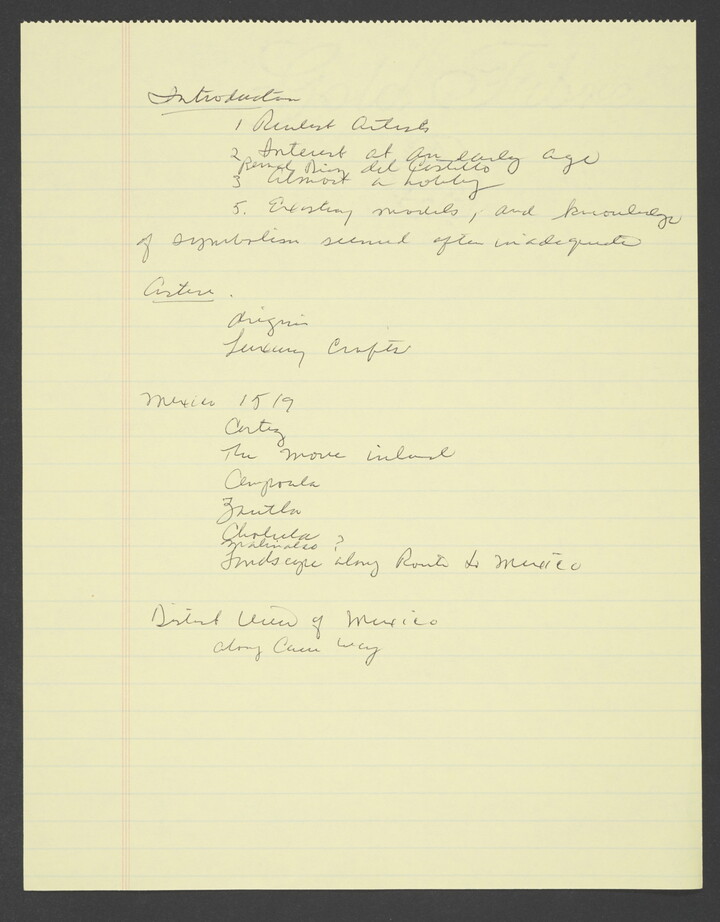 Introduction
1 Realist Artists
2 Interest at an early age
Bernal Diaz del Castillo
3 Almost a hobby
5. Existing models, and knowledge
of symbolism seemed often inadequate
Aztecs.
Origin
Luxury Crafts
Mexico 1519
Cortez
The move inland
Cempoala
Zautla
Cholula
Malinalco ?
Landscape along Route to Mexico
Distant View of Mexico
along Cause way